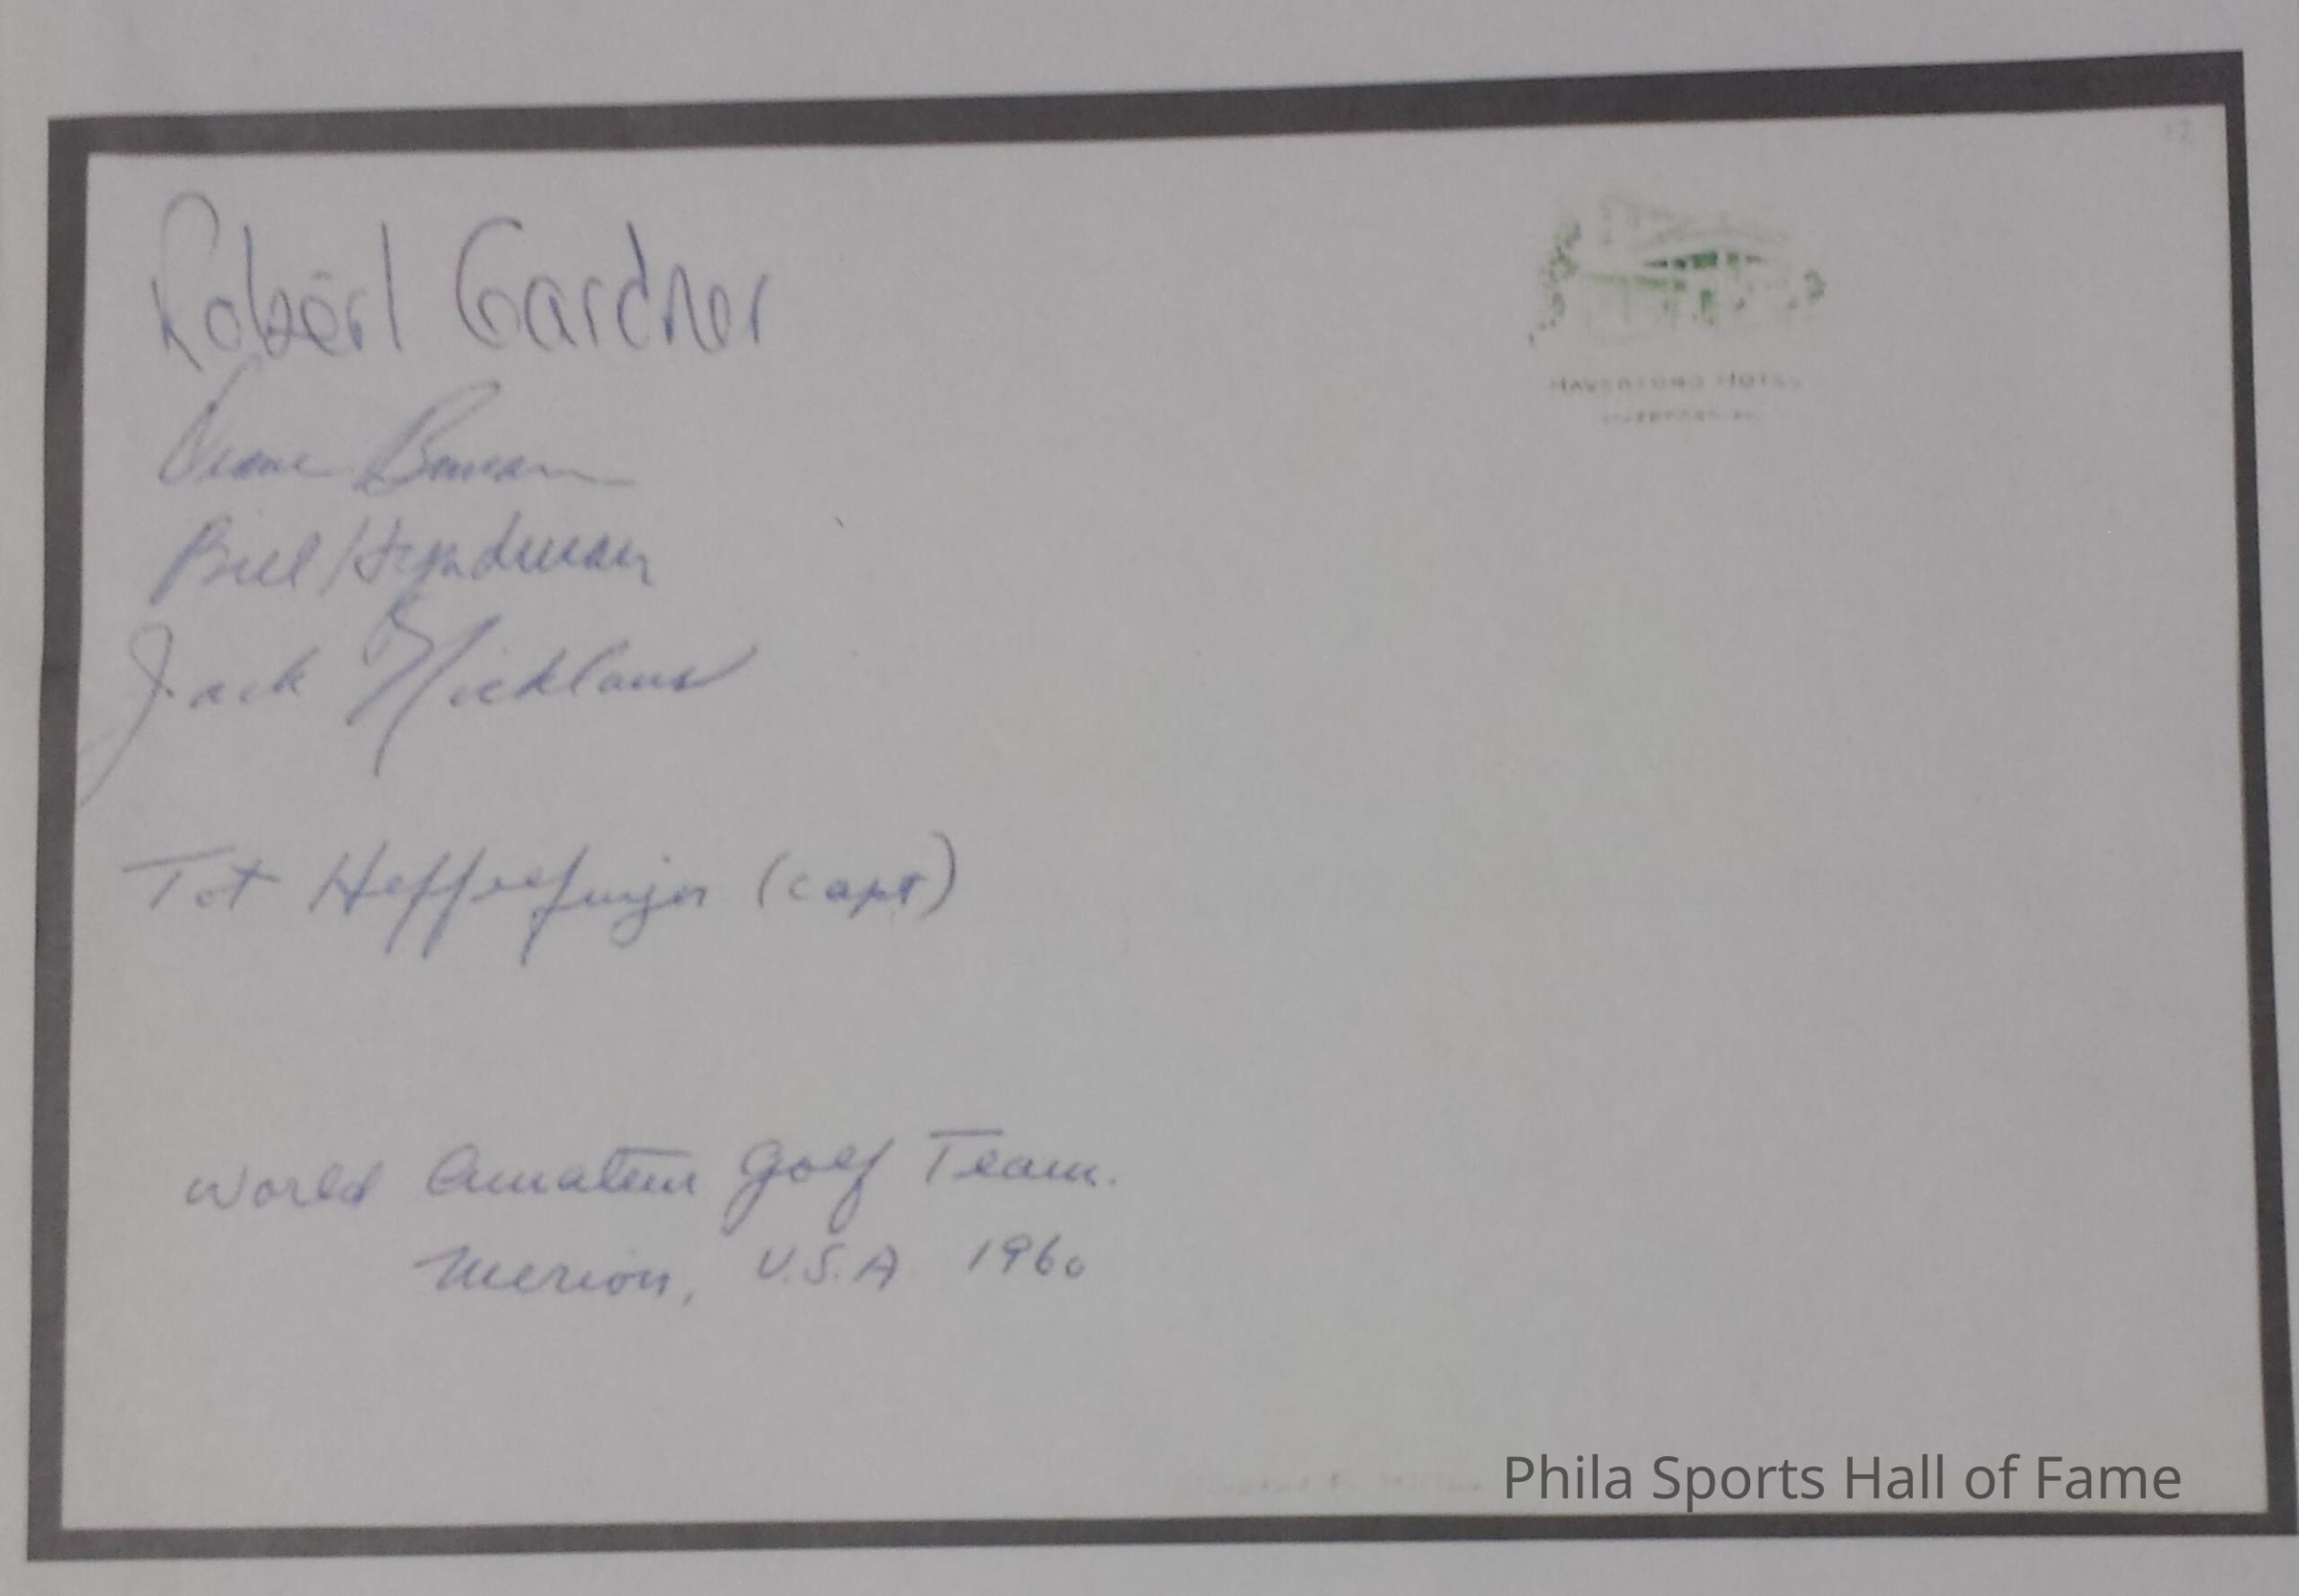 Robert Gardner
Deane Beman
Bill Hyndman
Jack Nicklaus
HAVERFORD HOTEL
Tot Heffelfinger (capt)
World Amateur Golf Team.
Merion, U.S.A. 1960
Phila Sports Hall of Fame